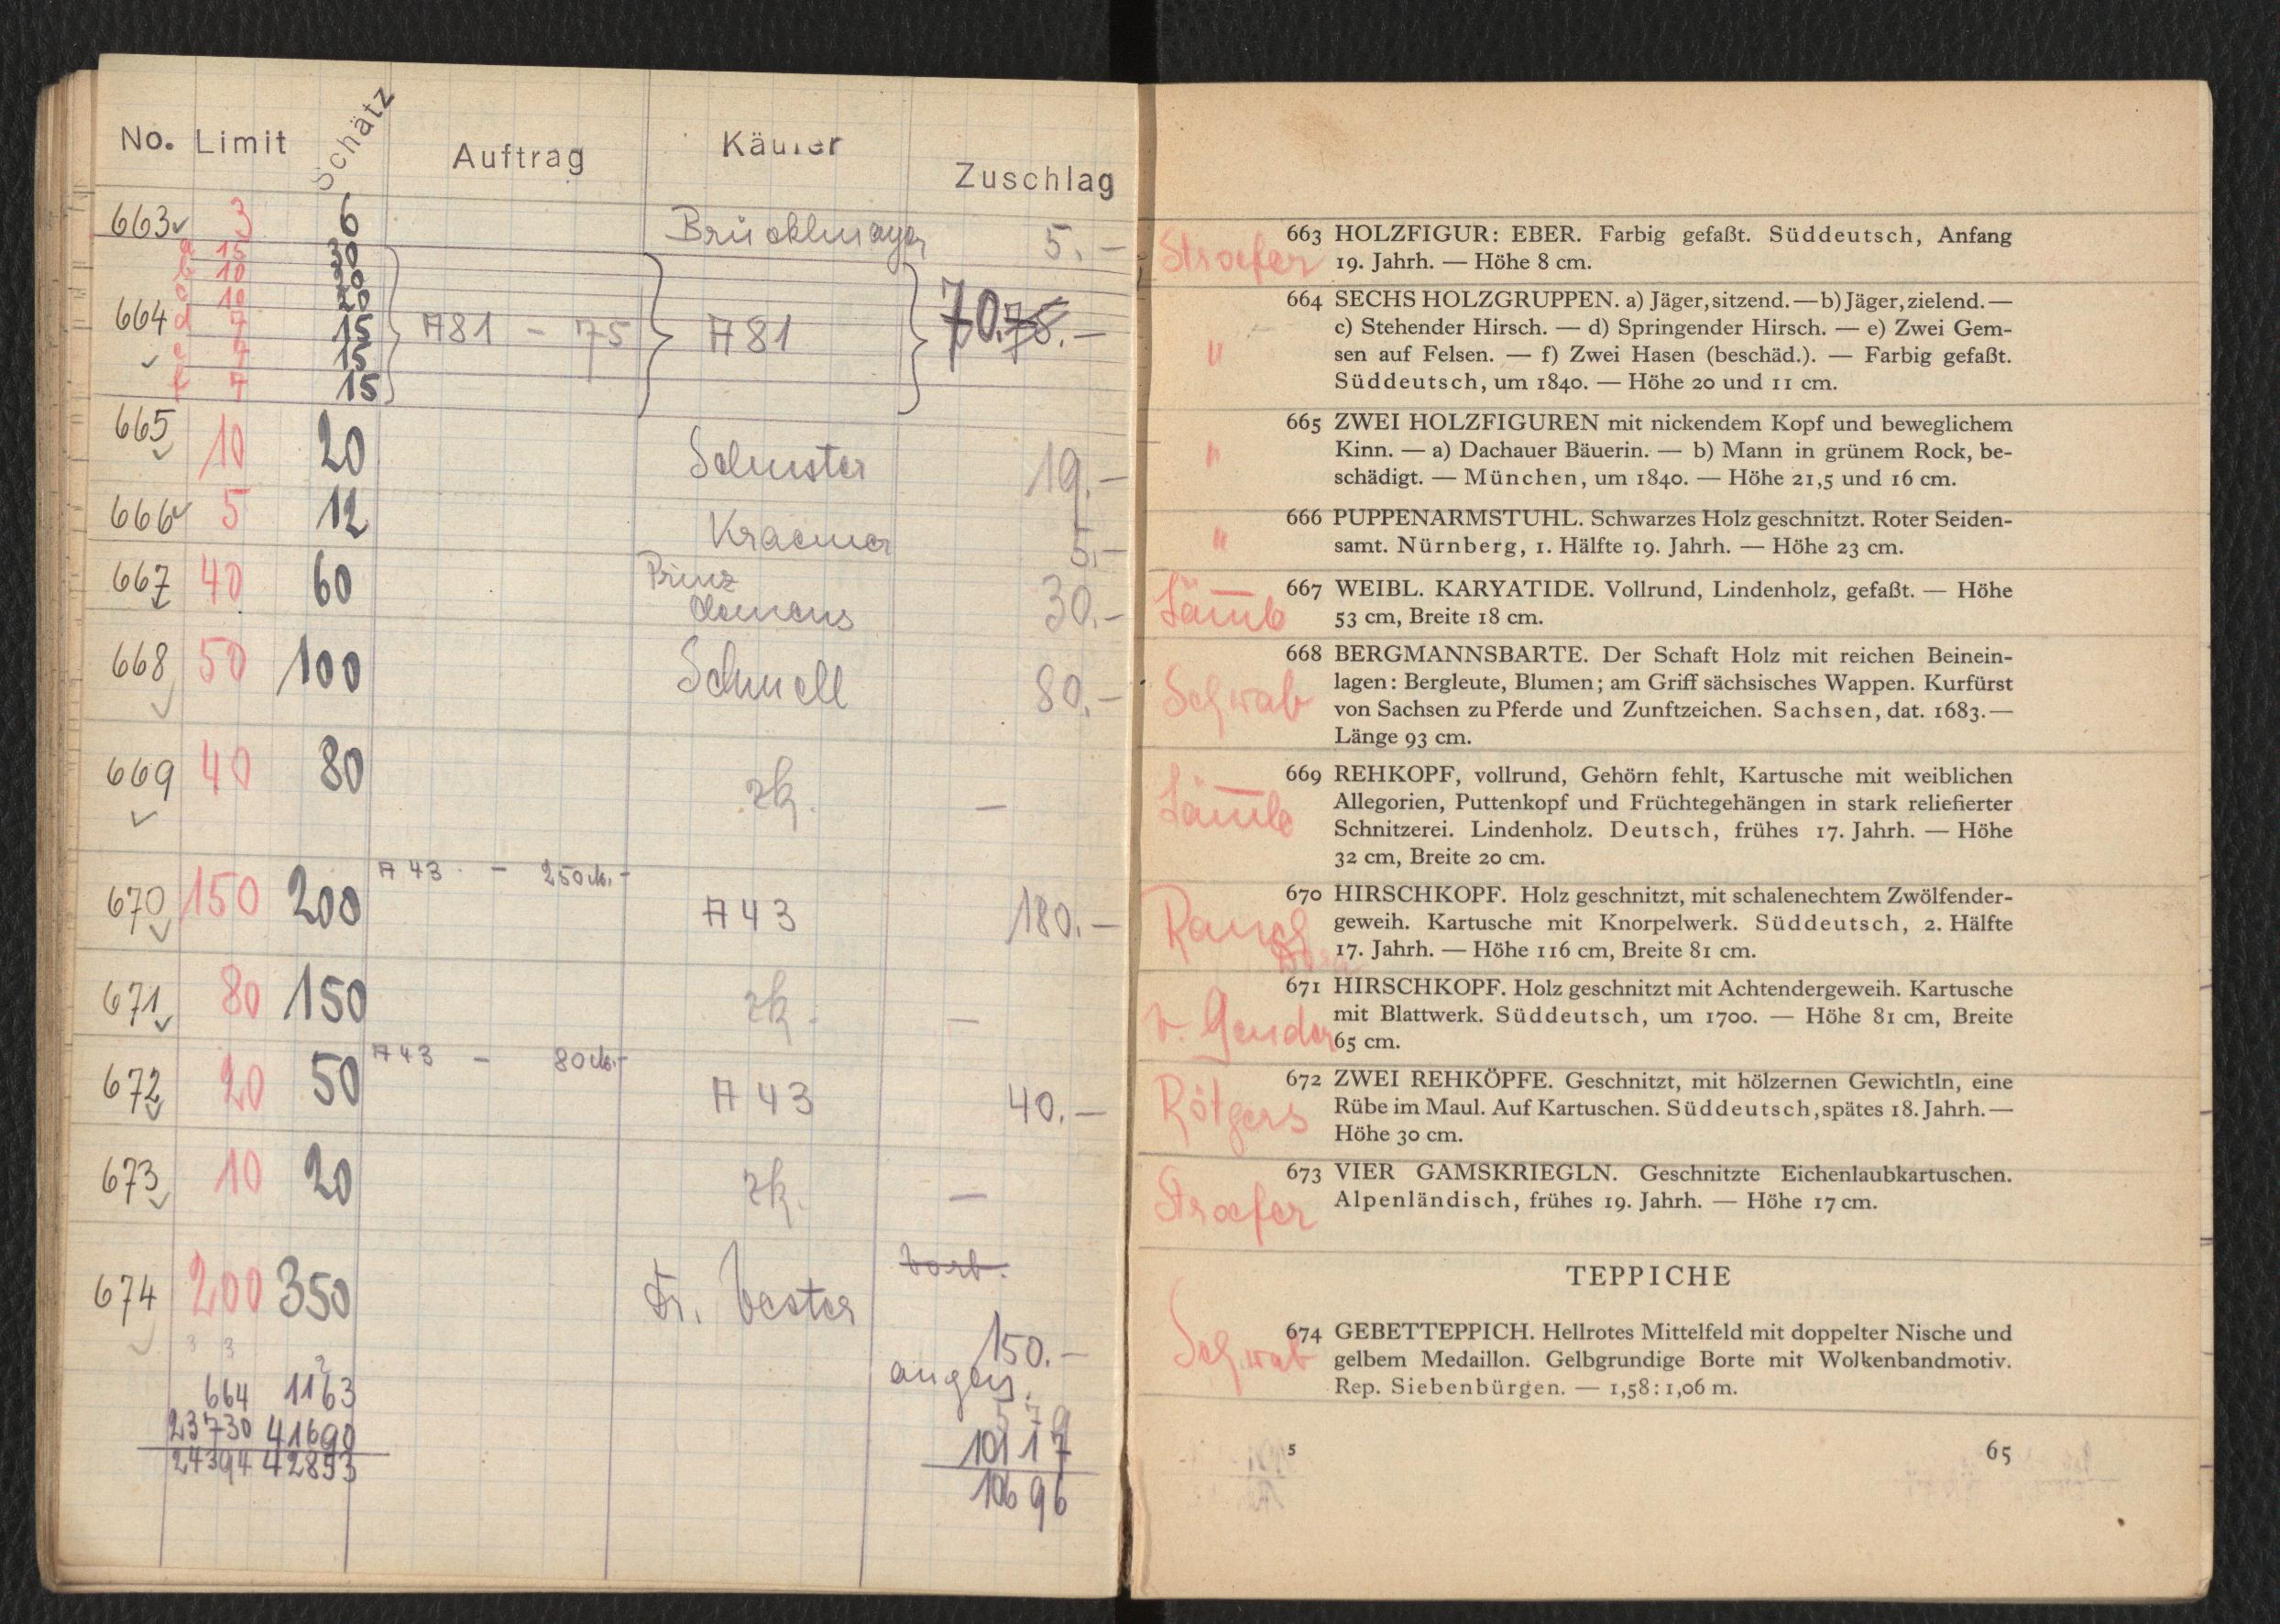 No. Limit Schätz Auftrag Käufer Zuschlag
663 3 6 Brücklmayer 5.-
a 15 30
b 10 20
c 10 20
664 d 7 15 A81 - 75 A81 70. 75.-
e 7 15
f 7 15
665 10 20 Schuster 19.-
666 5 12 Kraemer 5.-
667 40 60 Prinz
Clemens 30.-
668 50 100 Schnell 80.-
669 40 80 zk. -
A 43 - 250 M.-
670 150 200 A 43 180.-
671 80 150 zk. -
A 43 - 80 M.-
672 20 50 A 43 40.-
673 10 20 zk. -
vorb.
674 200 350 Fr. Vester
150.-
3 3 2
664 1163 579
23730 41690 10117
24394 42853 10696
Stroefer
663 HOLZFIGUR: EBER. Farbig gefaßt. Süddeutsch, Anfang
19. Jahrh. — Höhe 8 cm.
"
664 SECHS HOLZGRUPPEN. a) Jäger, sitzend. — b) Jäger, zielend. —
c) Stehender Hirsch. — d) Springender Hirsch. — e) Zwei Gem-
sen auf Felsen. — f) Zwei Hasen (beschäd.). — Farbig gefaßt.
Süddeutsch, um 1840. — Höhe 20 und 11 cm.
"
665 ZWEI HOLZFIGUREN mit nickendem Kopf und beweglichem
Kinn. — a) Dachauer Bäuerin. — b) Mann in grünem Rock, be-
schädigt. — München, um 1840. — Höhe 21,5 und 16 cm.
"
666 PUPPENARMSTUHL. Schwarzes Holz geschnitzt. Roter Seiden-
samt. Nürnberg, 1. Hälfte 19. Jahrh. — Höhe 23 cm.
Lämle
667 WEIBL. KARYATIDE. Vollrund, Lindenholz, gefaßt. — Höhe
53 cm, Breite 18 cm.
Schwab
668 BERGMANNSBARTE. Der Schaft Holz mit reichen Beinein-
lagen: Bergleute, Blumen; am Griff sächsisches Wappen. Kurfürst
von Sachsen zu Pferde und Zunftzeichen. Sachsen, dat. 1683. —
Länge 93 cm.
Lämle
669 REHKOPF, vollrund, Gehörn fehlt, Kartusche mit weiblichen
Allegorien, Puttenkopf und Früchtegehängen in stark reliefierter
Schnitzerei. Lindenholz. Deutsch, frühes 17. Jahrh. — Höhe
32 cm, Breite 20 cm.
Rauch
670 HIRSCHKOPF. Holz geschnitzt, mit schalenechtem Zwölfender-
geweih. Kartusche mit Knorpelwerk. Süddeutsch, 2. Hälfte
17. Jahrh. — Höhe 116 cm, Breite 81 cm.
671 HIRSCHKOPF. Holz geschnitzt mit Achtendergeweih. Kartusche
mit Blattwerk. Süddeutsch, um 1700. — Höhe 81 cm, Breite
65 cm.
Rötgers
672 ZWEI REHKÖPFE. Geschnitzt, mit hölzernen Gewichtln, eine
Rübe im Maul. Auf Kartuschen. Süddeutsch, spätes 18. Jahrh. —
Höhe 30 cm.
Stroefer
673 VIER GAMSKRIEGLN. Geschnitzte Eichenlaubkartuschen.
Alpenländisch, frühes 19. Jahrh. — Höhe 17 cm.
TEPPICHE
Schwab
674 GEBETTEPPICH. Hellrotes Mittelfeld mit doppelter Nische und
gelbem Medaillon. Gelbgrundige Borte mit Wolkenbandmotiv.
Rep. Siebenbürgen. — 1,58 : 1,06 m.
5 65